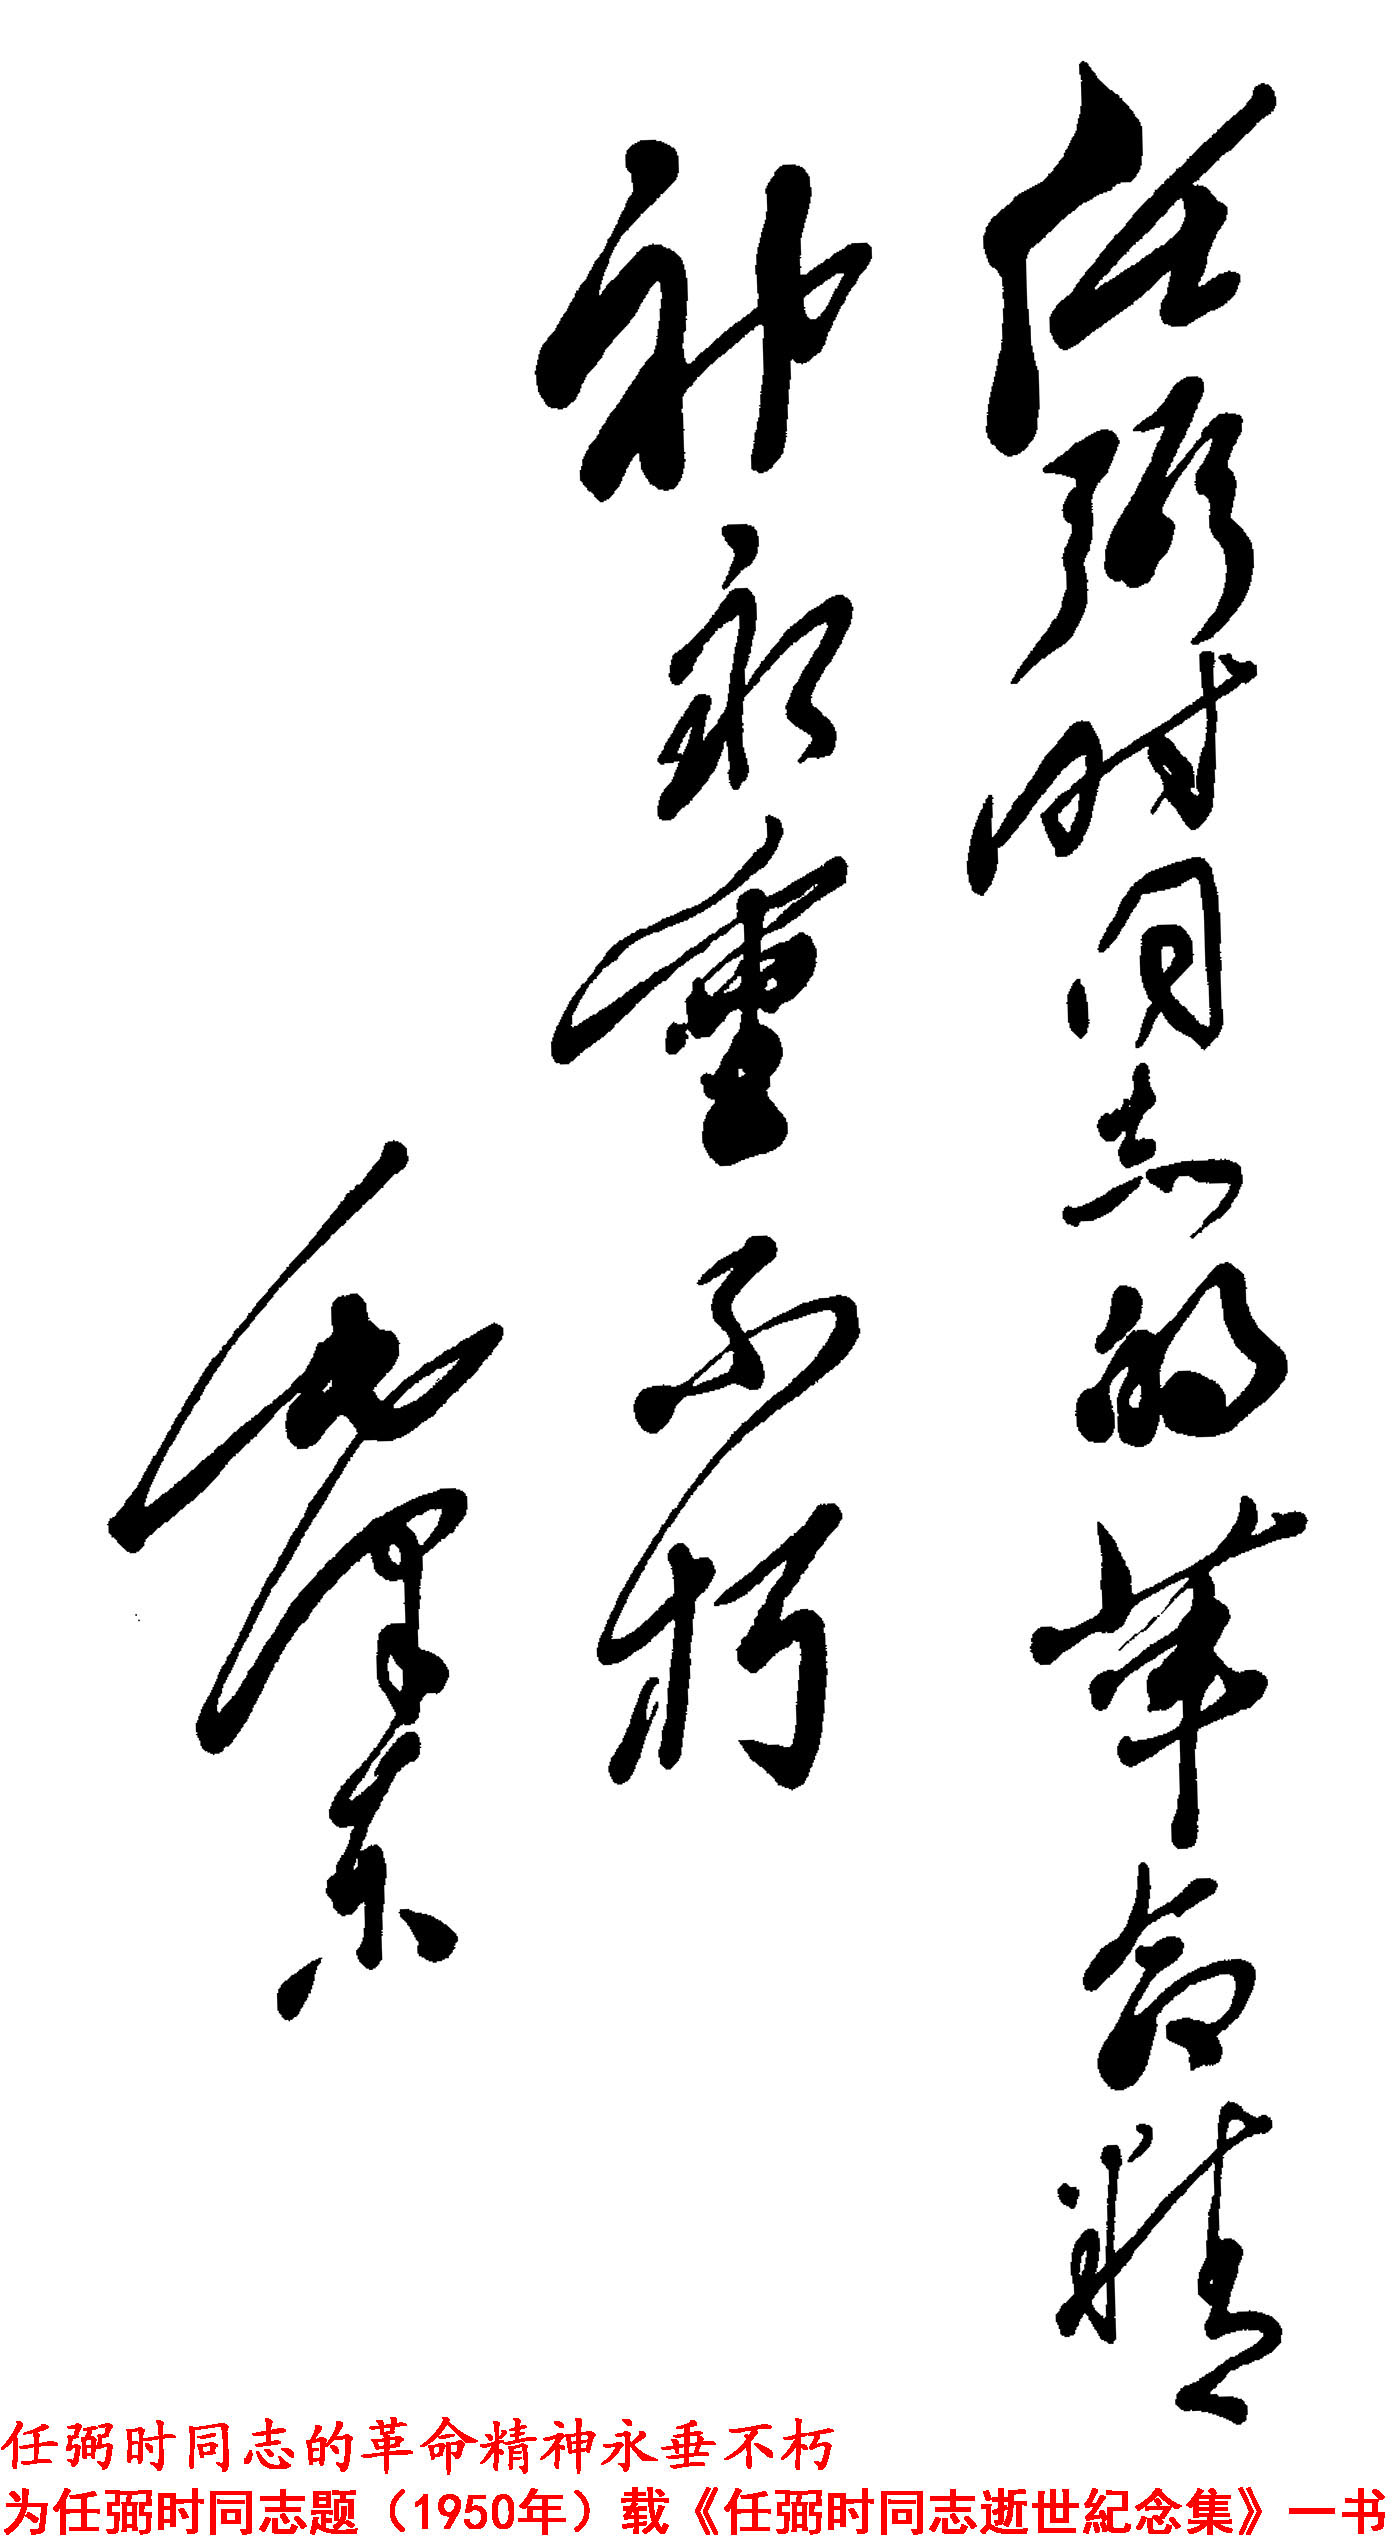 任弼时同志的革命精
神永垂不朽
毛泽东
任弼时同志的革命精神永垂不朽
为任弼时同志题（1950年）载《任弼时同志逝世紀念集》一书